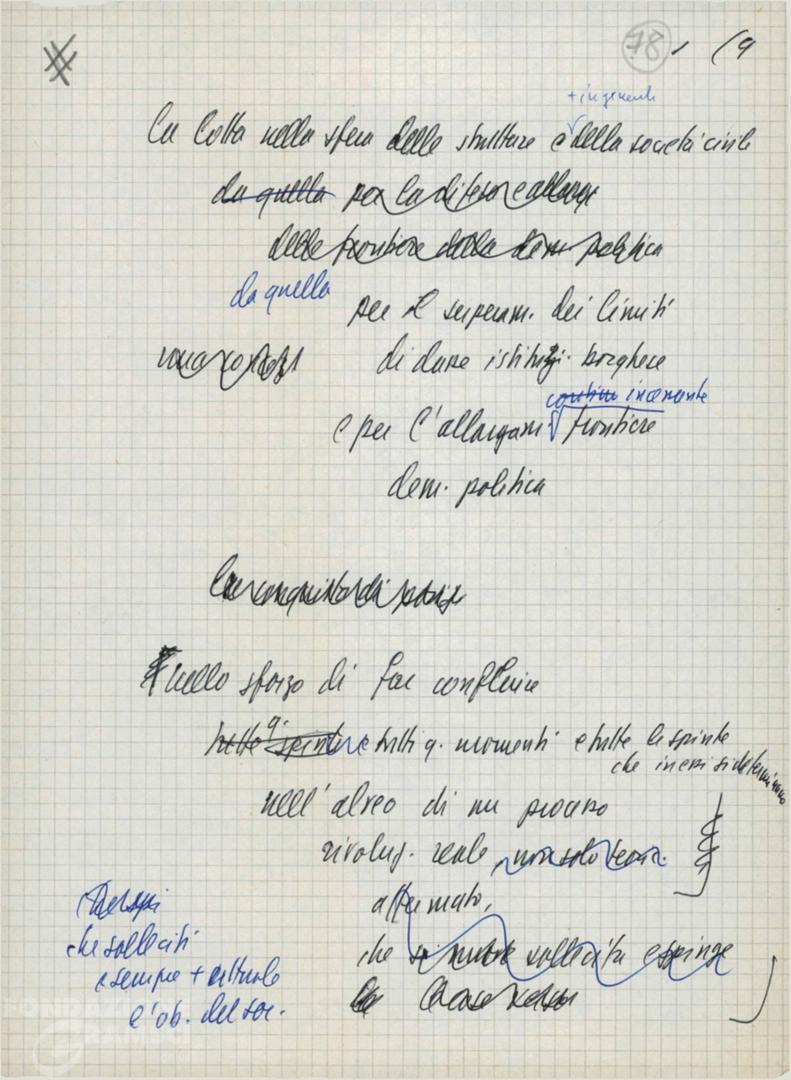 78 1 (9
+ in generale
La lotta nella sfera delle strutture e della società civile
da quella per la difesa e allarg.
delle frontiere della dem. politica
da quella
per il superam. dei limiti
di dare istituz. borghese
continu incessante
e per l'allargam. frontiere
dem. politica
La conquista di
nello sforzo di far confluire
tutte q. spinte tutti q. momenti e tutte le spinte
che in essi si determinano
nell'alveo di un processo
rivoluz. reale, non solo teor.
affermato,
che si muove sollecita e spinge
che solleciti
e sempre + attuale
l'ob. del soc.